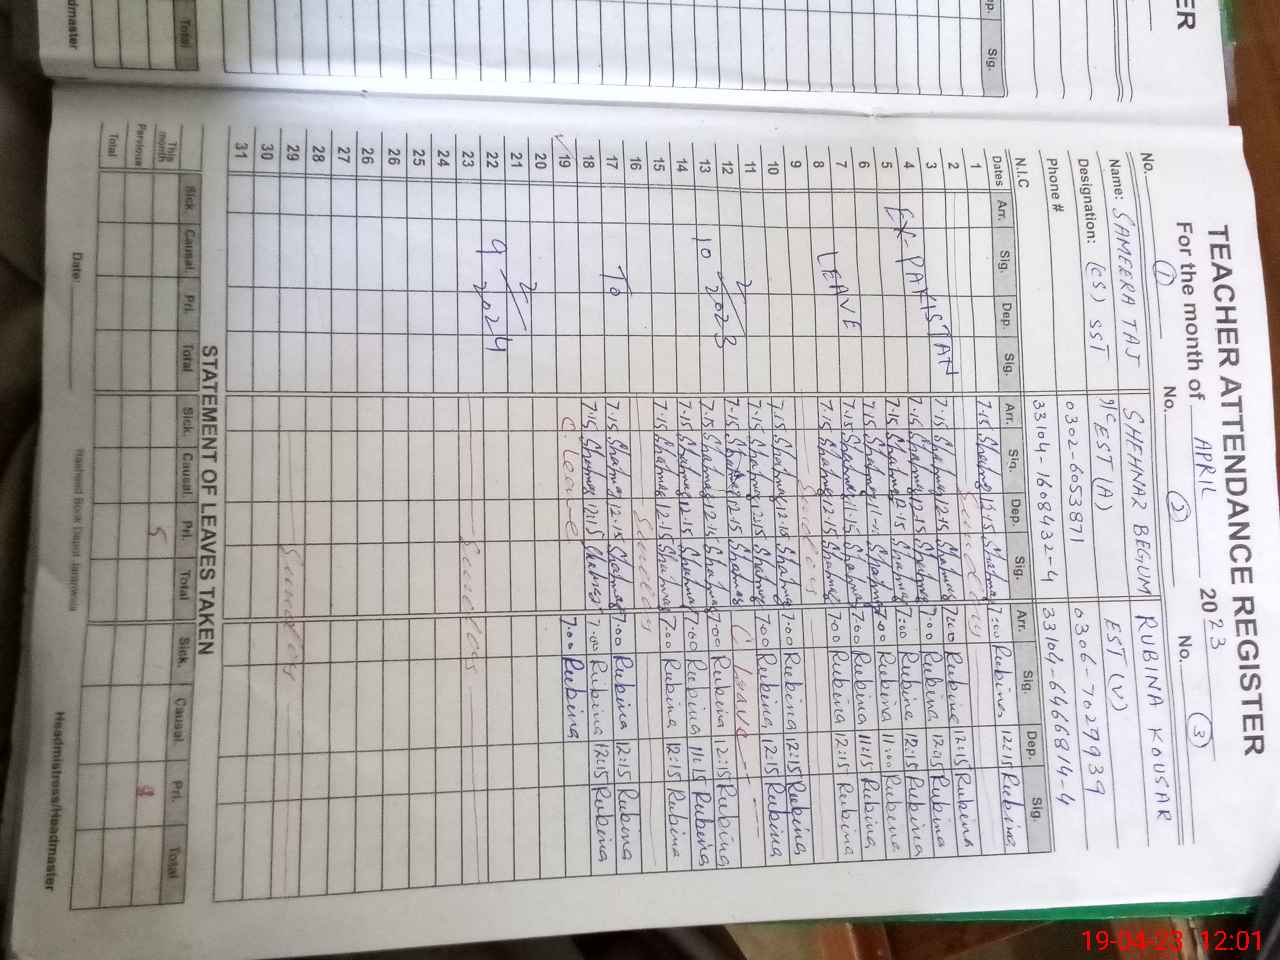 TEACHER ATTENDANCE REGISTER
For the month of APRIL 2023
No. 1 No. 2 No. 3
Name: SAMEERA TAJ SHEHNAZ BEGUM RUBINA KOUSAR
Designation: (CS) SST I/C EST (A) EST (V)
Phone # 0302-6053871 0306-7029939
N.I.C 33104-1608432-4 33104-6466814-4
Dates Arr. Sig. Dep. Sig. Arr. Sig. Dep. Sig. Arr. Sig. Dep. Sig.
1 7:15 12:15 7:00 Rubina 12:15 Rubina
2 Sunday
3 7:15 Shahnaz 12:15 Shahnaz 7:00 Rubina 12:15 Rubina
4 7:15 Shahnaz 12:15 Shahnaz 7:00 Rubina 12:15 Rubina
5 7:15 Shahnaz 12:15 Shahnaz 7:00 Rubina 12:15 Rubina
6 7:15 Shahnaz Shahnaz 7:00 Rubina 11:00 Rubina
7 7:15 Shahnaz 11:15 Shahnaz 7:00 Rubina 11:15 Rubina
8 7:15 Shahnaz 12:15 Shahnaz 7:00 Rubina 12:15 Rubina
9 Sunday
10 7:15 Shahnaz 12:15 Shahnaz 7:00 Rubina 12:15 Rubina
11 7:15 Shahnaz 12:15 Shahnaz 7:00 Rubina 12:15 Rubina
12 7:15 Shahnaz 12:15 Shahnaz C Leave
13 7:15 Shahnaz 12:15 Shahnaz 7:00 Rubina 12:15 Rubina
14 7:15 Shahnaz 12:15 Shahnaz 7:00 Rubina 11:15 Rubina
15 7:15 Shahnaz 12:15 Shahnaz 7:00 Rubina 12:15 Rubina
16 Sunday
17 7:15 Shahnaz 12:15 Shahnaz 7:00 Rubina 12:15 Rubina
18 7:15 Shahnaz 12:15 Shahnaz 7:00 Rubina 12:15 Rubina
19 C. leave 7:00 Rubina
20
21
22
23 Sunday
24
25
26
26
27
28
29
30 Sunday
31
EX-PAKISTAN
LEAVE
10 2/2023
To
9 2/2024
STATEMENT OF LEAVES TAKEN
Sick. Causal. Pri. Total Sick. Causal. Pri. Total Sick. Causal. Pri. Total
This month
Pervious 5
Total
Date:
Rasheed Book Depot Jaranwala
Headmistress/Headmaster
ER
ep. Sig.
Total
dmaster
19-04-23 12:01